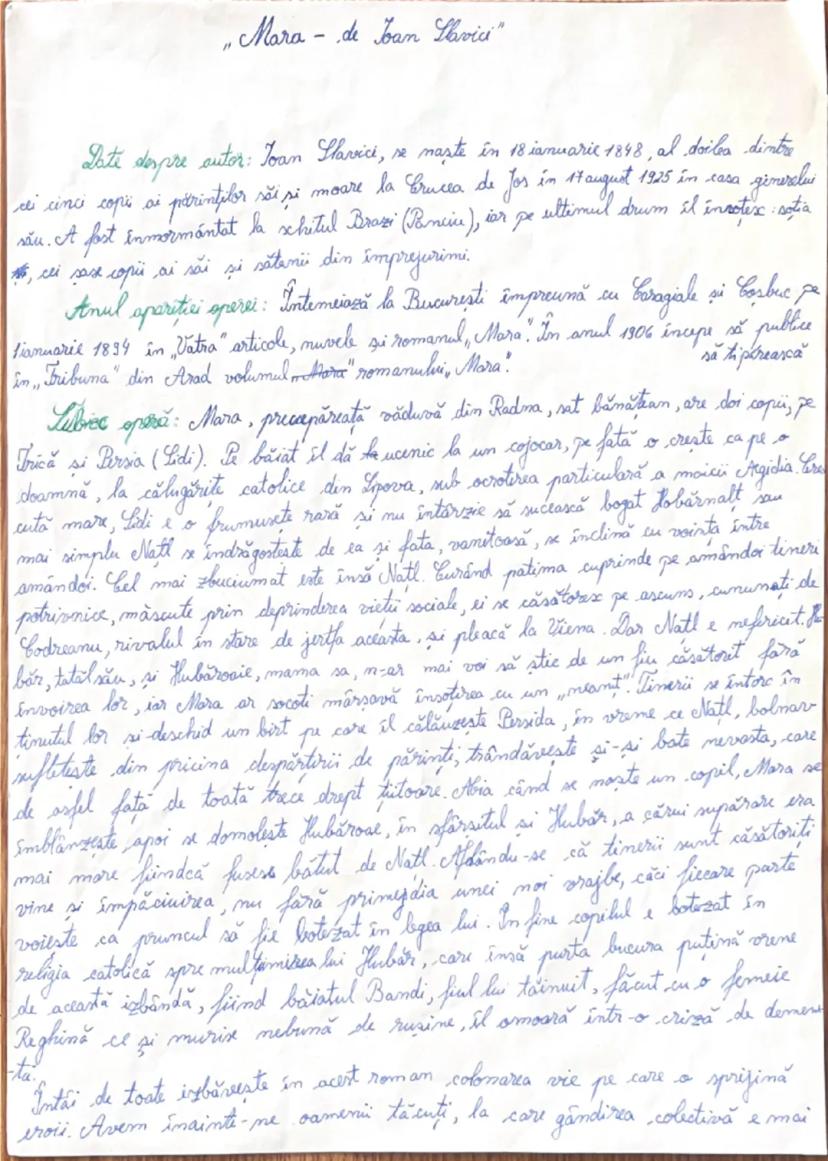 „Mara – de Ioan Slavici”
Date despre autor: Ioan Slavici, se naște în 18 ianuarie 1848, al doilea dintre
cei cinci copii ai părinților săi și moare la Crucea de Jos în 17 august 1925 în casa ginerelui
său. A fost înmormântat la schitul Brazi (Panciu), iar pe ultimul drum îl însoțesc: soția
, cei șase copii ai săi și sătenii din împrejurimi.
Anul apariției operei: Întemeiază la București împreună cu Caragiale și Coșbuc pe
1 ianuarie 1894 în „Vatra” articole, nuvele și romanul „Mara”. În anul 1906 începe să publice
să tipărească
în „Tribuna” din Arad volumul „Mara” romanului „Mara”.
Subiec operă: Mara, precupăreață văduvă din Radna, sat bănățean, are doi copii, pe
Trică și Persia (Sidi). Pe băiat îl dă ucenic la un cojocar, pe fată o crește ca pe o
doamnă, la călugărițe catolice din Lipova, sub ocrotirea particulară a maicii Aegidia. Cres
cută mare, Sidi e o frumusețe rară și nu întârzie să sucească bogat Hobărnalț sau
mai simplu Națl se îndrăgostește de ea și fata, vanitoasă, se înclină cu voința între
amândoi. Cel mai zbuciumat este însă Națl. Curând patima cuprinde pe amândoi tineri
potrivnice, născute prin deprinderea vieții sociale, ei se căsătoresc pe ascuns, cununați de
Codreanu, rivalul în stare de jertfa aceasta, și pleacă la Viena. Dar Natl e nefericit. Hu
băr, tatăl său, și Hubăroaie, mama sa, n-ar mai voi să știe de un fiu căsătorit fără
învoirea lor, iar Mara ar socoti mârșavă însoțirea cu un „neamț”. Tinerii se întorc în
ținutul lor și deschid un birt pe care îl călăuzește Persida, în vreme ce Națl, bolnav
sufletește din pricina despărțirii de părinți, trândăvește și-și bate nevasta, care
de asfel față de toată trece drept țiitoare. Abia când se naște un copil, Mara se
îmblânzește, apoi se domolește Hubăroae, în sfârșitul și Hubăr, a cărui supărare era
mai mare fiindcă fusese bătut de Natl. Aflându-se că tinerii sunt căsătoriți
vine și împăciuirea, nu fără primejdia unei noi vrajbe, căci fiecare parte
voiește ca pruncul să fie botezat în legea lui. În fine copilul e botezat în
religia catolică spre mulțumirea lui Hubăr, care însă purta bucura puțină vreme
de această izbândă, fiind băiatul Bandi, fiul lui tăinuit, făcut cu o femeie
Reghină ce și murise nebună de rușine, îl omoară într-o criză de demen-
-ță.
Întâi de toate izbăvește în acest roman colonarea vie pe care o sprijină
eroii. Avem înainte-ne oamenii tăcuți, la care gândirea colectivă e mai